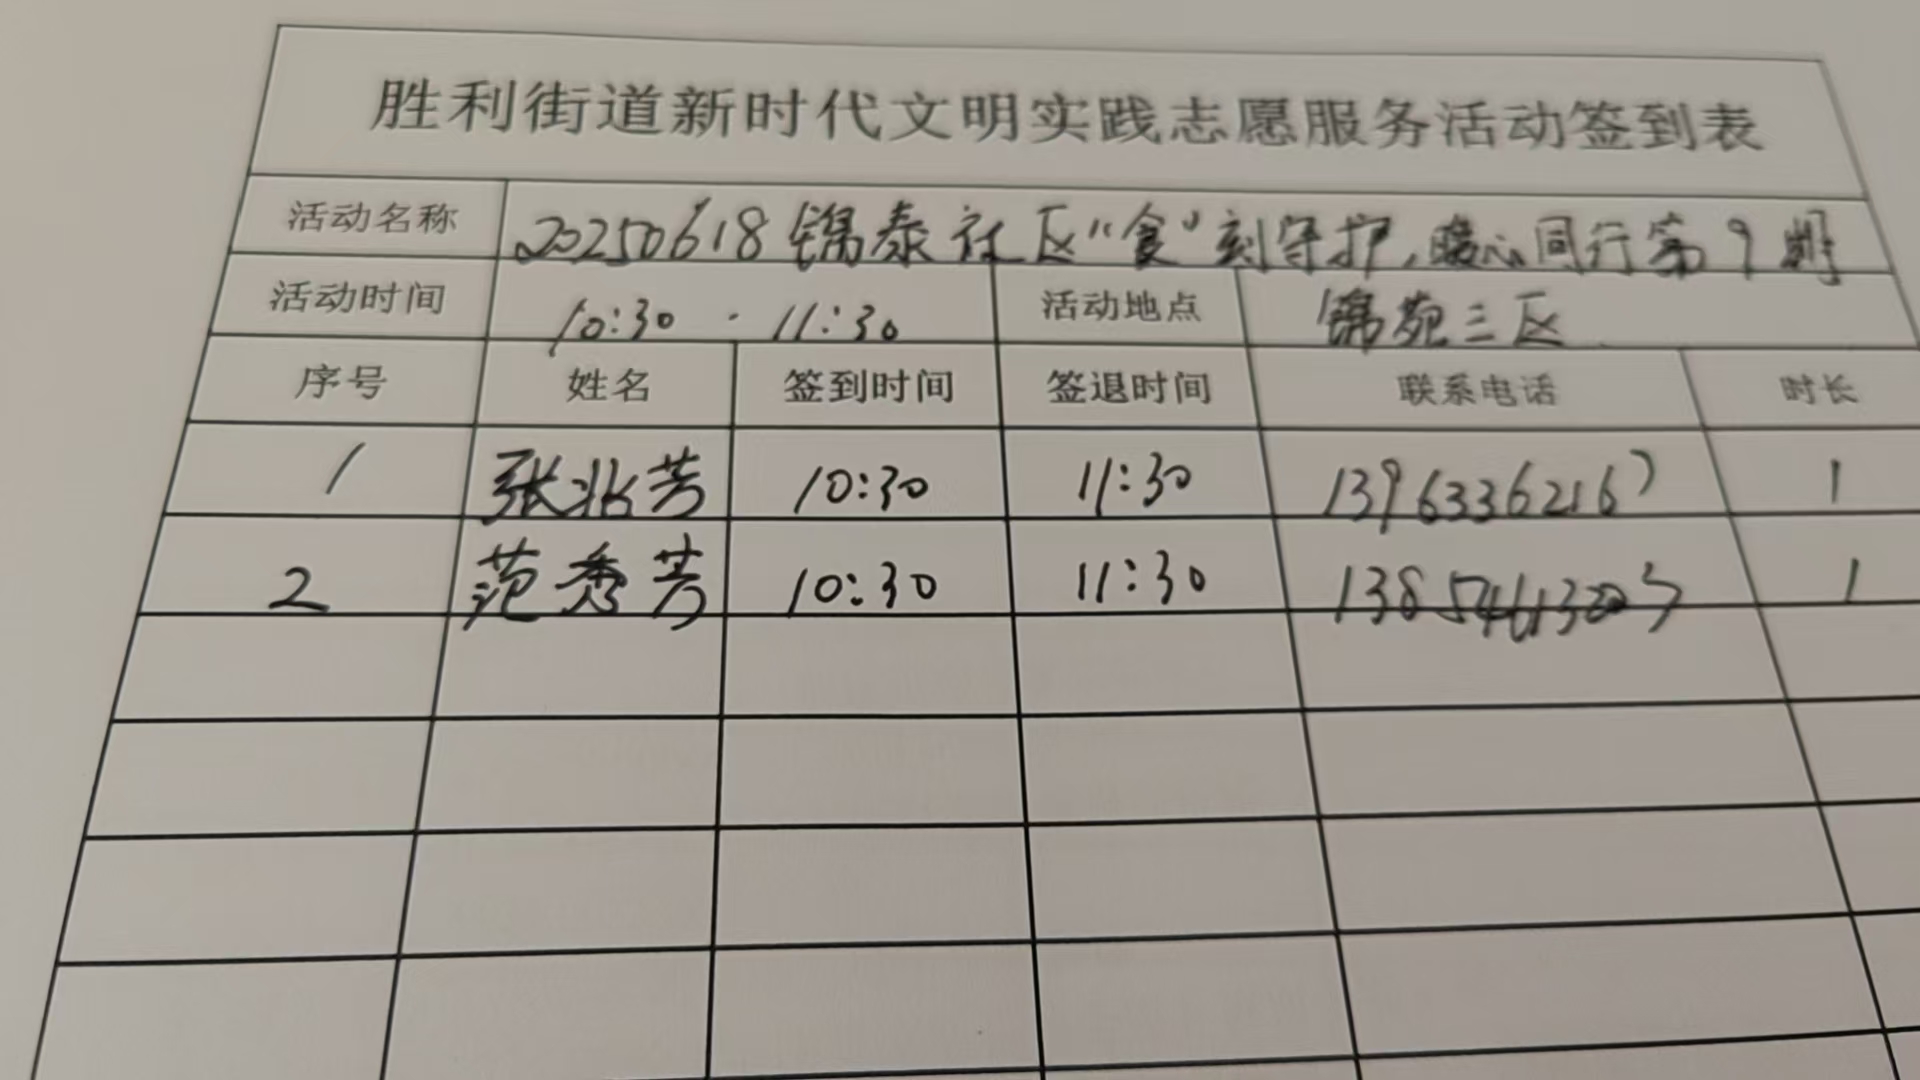 胜利街道新时代文明实践志愿服务活动签到表
活动名称 20250618锦泰社区“食”刻守护,暖心同行第9期
活动时间 10:30 · 11:30 活动地点 锦苑三区
序号 姓名 签到时间 签退时间 联系电话 时长
1 张兆芳 10:30 11:30 13963362167 1
2 范秀芳 10:30 11:30 1